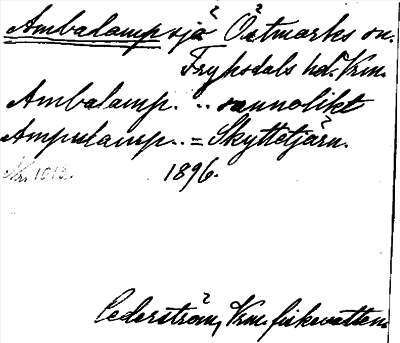 Ambalampsjä Östmarks sn.
Fryksdals hd. Vrm.
Ambalamp. .. sannolikt
Ampulamp.. = Skyttetjärn.
Nr. 1013. 1896.
Cederström, Vrm. fiskevatten.